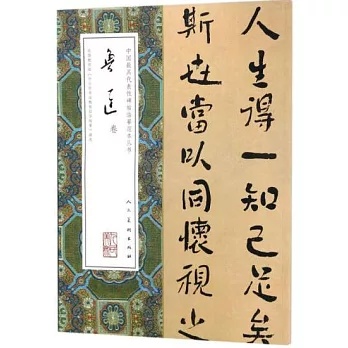 人生得一知己足矣
斯世當以同懷視之
中国最具代表性碑帖临摹范本丛书
魯迅 卷
人民美术出版社